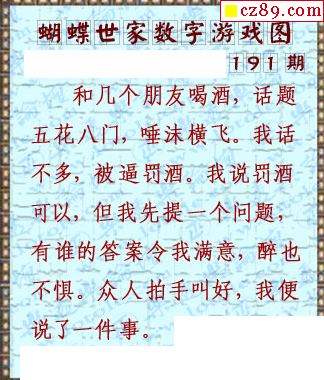 cz89.com
蝴蝶世家数字游戏图
191期
和几个朋友喝酒，话题
五花八门，唾沫横飞。我话
不多，被逼罚酒。我说罚酒
可以，但我先提一个问题，
有谁的答案令我满意，醉也
不惧。众人拍手叫好，我便
说了一件事。